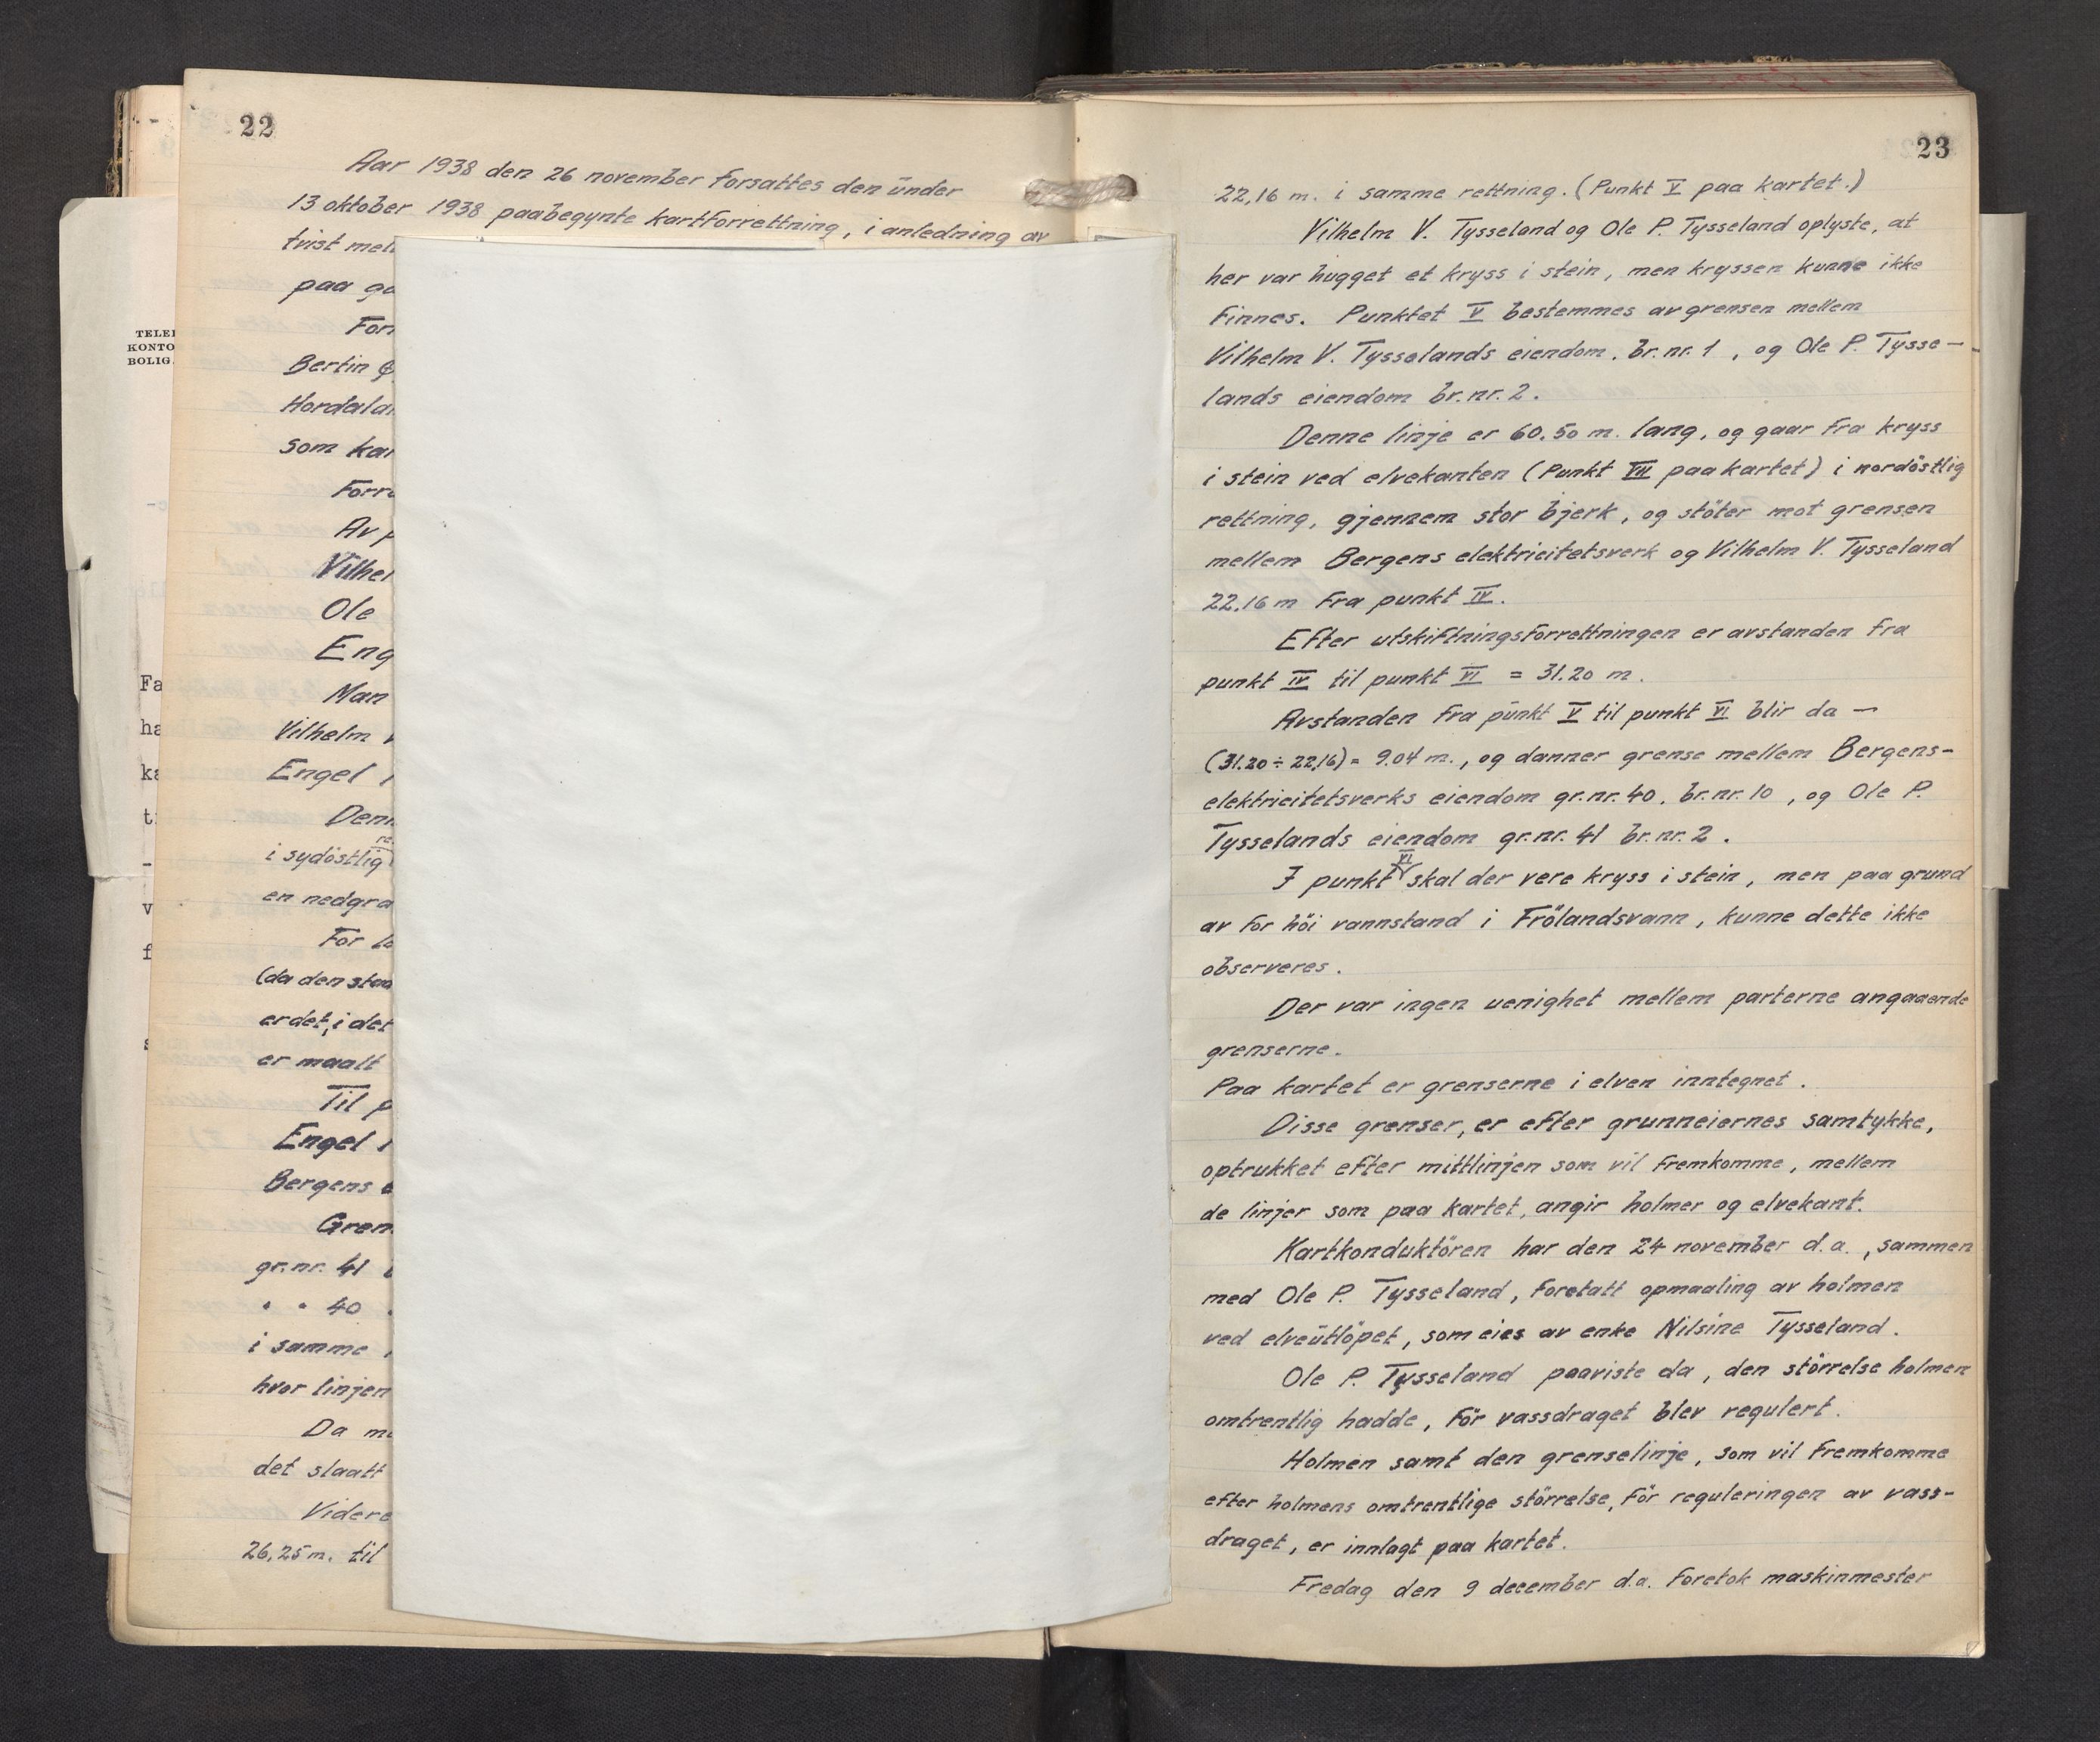 TELEF
KONTO
BOLIG.
Fa
ha
ka
v
f
22
Aar 1938 den 26 november forsattes den ünder
13 oktober 1938 paabegynte kartforrettning, i anledning av
tvist mell
paa ga
For
Bertin
Hordalan
som kar
Forre
Av p
Vilhel
Ole
Eng
Man
Vilhelm V
Engel
Denn
i sydöstlig
en nedgra
For
(da den staa
er det, i det
er maalt
Til p
Engel
Bergens e
Gren
gr.nr. 41
" " 40
i samme
hvor linjen
Da m
det slaatt
Videre
26,25 m. til
23
22,16 m. i samme rettning. (Punkt V paa kartet.)
Vilhelm V. Tysseland og Ole P. Tysseland oplyste, at
her var hugget et kryss i stein, men krysser kunne ikke
finnes. Punktet V bestemmes av grensen mellem
Vilhelm V. Tysselands eiendom. br. nr. 1, og Ole P. Tysse-
lands eiendom br. nr. 2.
Denne linje er 60.50 m. lang, og gaar fra kryss
i stein ved elvekanten (Punkt VII paa kartet) i nordöstlig
rettning, gjennem stor bjerk, og stöter mot grensen
mellem Bergens elektricitetsverk og Vilhelm V. Tysseland
22,16 m fra punkt IV.
Efter utskiftningsforrettningen er avstanden fra
punkt IV til punkt VI = 31.20 m.
Avstanden fra pünkt V til punkt VI blir da —
(31.20 ÷ 22,16) = 9.04 m., og danner grense mellem Bergens-
elektricitetsverks eiendom gr. nr. 40. br. nr. 10, og Ole P.
Tysselands eiendom gr. nr. 41 br. nr. 2.
I punkt VI skal der vere kryss i stein, men paa grund
av for höi vannstand i Frölandsvann, kunne dette ikke
observeres.
Der var ingen uenighet mellem parterne angaaende
grenserne.
Paa kartet er grenserne i elven inntegnet.
Disse grenser, er efter grunneiernes samtykke,
optrukket efter mittlinjen som vil fremkomme, mellem
de linjer som paa kartet, angir holmer og elvekant.
Kartkonduktören har den 24 november d. a., sammen
med Ole P. Tysseland, foretatt opmaaling av holmen
ved elveütlöpet, som eies av enke Nilsine Tysseland.
Ole P. Tysseland paaviste da, den störrelse holmen
omtrentlig hadde, för vassdraget blev regulert.
Holmen samt den grenselinje, som vil fremkomme
efter holmens omtrentlige störrelse, för reguleringen av vass-
draget, er innlagt paa kartet.
Fredag den 9 december d.a. foretok maskinmester